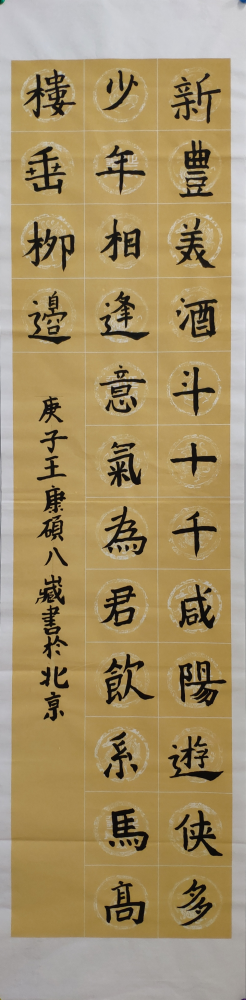 新豐美酒斗十千咸陽遊俠多
少年相逢意氣為君飲系馬高
樓垂柳邊
庚子王康碩八歲書於北京